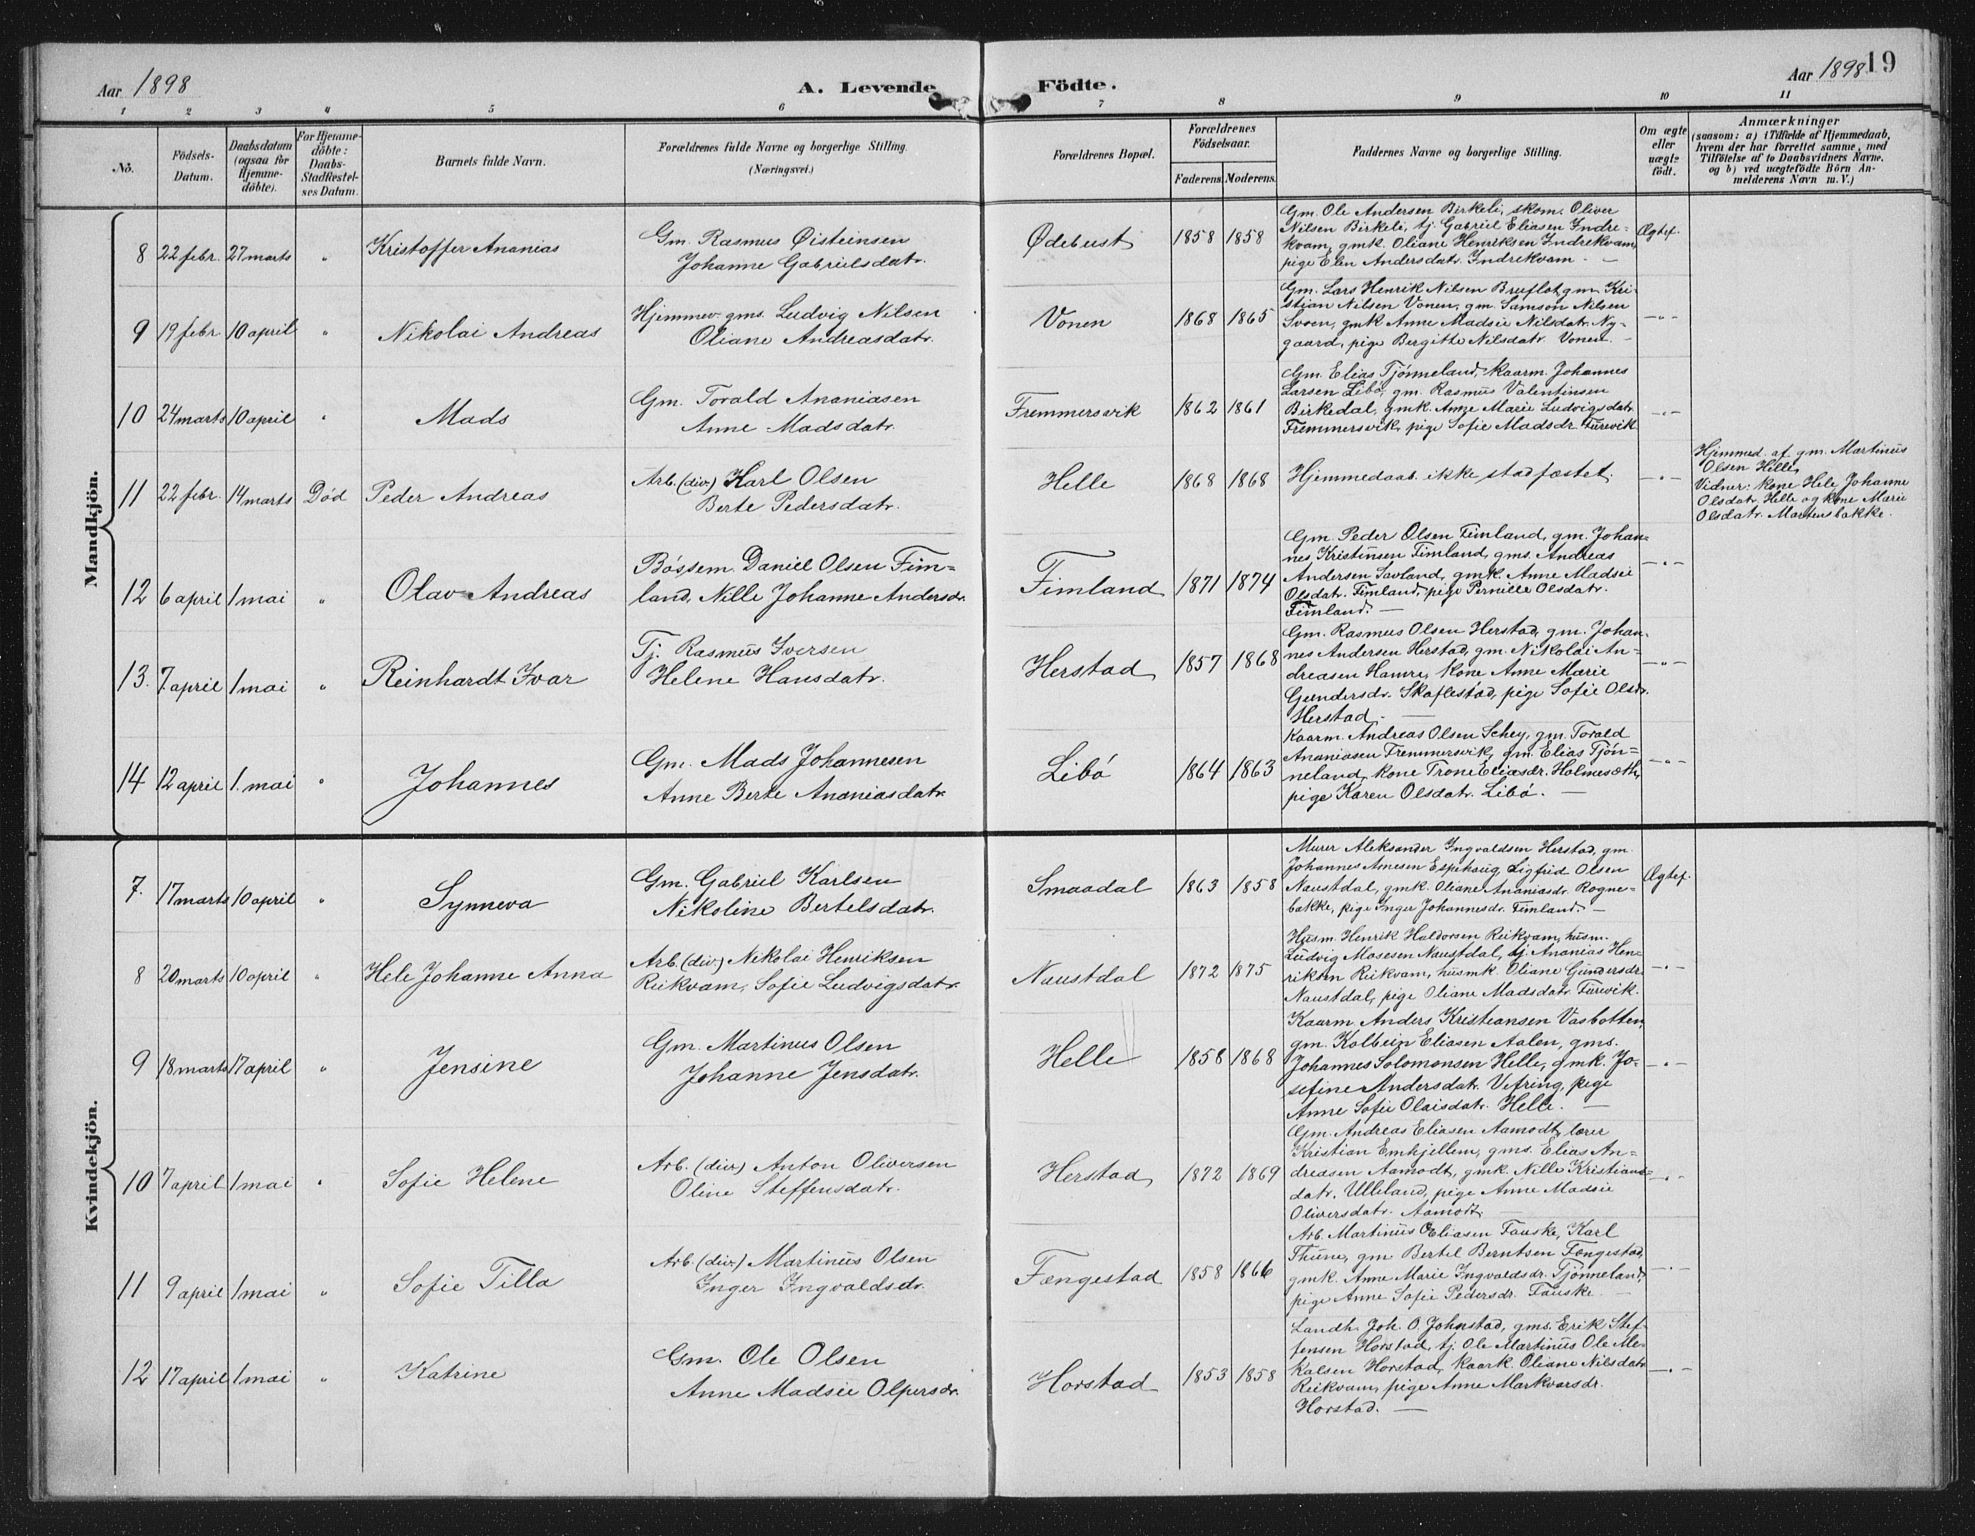 Aar 1898
A. Levende Födte.
Aar 1898
19
1 2 3 4 5 6 7 8 9 10 11
No.
Födsels-
Datum.
Daabsdatum
(ogsaa for
Hjemme-
döbte).
For Hjemme-
döbte:
Daabs-
Stadfestel-
ses Datum.
Barnets fulde Navn.
Forældrenes fulde Navne og borgerlige Stilling.
(Næringsvei.)
Forældrenes Bopæl.
Forældrenes
Födselsaar.
Faderens. Moderens.
Faddernes Navne og borgerlige Stilling.
Om ægte
eller
uægte
födt.
Anmærkninger
(saasom: a) i Tilfælde af Hjemmedaab,
hvem der har forrettet samme, med
Tilföielse af to Daabsvidners Navne.
og b) ved uægtefödte Börn An-
melderens Navn m. V.)
Mandkjön.
8 22 febr. 27 marts " Kristoffer Ananias
Gm. Rasmus Øisteinsen
Johanne Gabrielsdatr.
Ødebust 1858 1858
Gm. Ole Andersen Birkeli, skom. Oliver
Nilsen Birkeli, tj. Gabriel Eliasen Indre-
kvam, gmk. Oliane Henriksen Indrekvam,
pige Elen Andersdatr. Indrekvam. —
Ægtef.
9 19 febr. 10 april " Nikolai Andreas
Hjemmev. gms. Ludvig Nilsen
Oliane Andreasdatr.
Vonen 1868 1865
Gm. Lars Henrik Nilsen Bruflot, gm. Kri-
stian Nilsen Vonen, gm. Samson Nilsen
Svoen, gmk. Anne Madsie Nilsdatr. Ny-
gaard, pige Bergitte Nilsdatr. Vonen. —
—"—
10 24 marts 10 april " Mads
Gm. Torald Ananiasen
Anne Madsdatr.
Fremmersvik 1862 1861
Gm. Elias Tjønneland, kaarm. Johannes
Larsen Libø, gm. Rasmus Valentinsen
Birkedal, gmk. Anne Marie Ludvigsdatr.
Fremmersvik, pige Sofie Madsdr. Furevik
—"—
11 22 febr. 14 marts Död Peder Andreas
Arb. (div.) Karl Olsen
Berte Pedersdatr.
Helle 1868 1868
Hjemmedaab ikke stadfæstet.
—"—
Hjemmed. af gm. Martinus
Olsen Helle,
Vidner: kone Hele Johanne
Olsdatr. Helle og kone Marie
Olsdatr. Martensbakke.
12 6 april 1 mai " Olav Andreas
Bøssem. Daniel Olsen Fim-
land, Nille Johanne Andersdr.
Fimland 1871 1874
Gm. Peder Olsen Fimland, gm. Johan-
nes Kristensen Fimland, gms. Andreas
Andersen Savland, gmk. Anne Madsie
Olsdatr. Fimland, pige Pernille Olsdatr.
Fimland. —
—"—
13. 7 april 1 mai " Reinhardt Ivar
Tj. Rasmus Iversen
Helene Hansdatr.
Herstad 1857 1868
Gm. Rasmus Olsen Herstad, gm. Johan-
nes Andersen Herstad, gm. Nikolai An-
dreasen Hamre, kone Anne Marie
Gundersdr. Skaflestad, pige Sofie Olsdr.
Herstad. —
—"—
14 12 april 1. mai " Johannes
Gm. Mads Johannesen
Anne Berte Ananiasdatr.
Libø 1864 1863
Kaarm. Andreas Olsen Schey, gm. Torald
Ananiasen Fremmersvik, gm. Elias Tjøn-
neland, kone Trone Eliasdr. Holmesæth,
pige Karen Olsdatr. Libø. —
—"—
Kvindekjön.
7. 17 marts 10 april " Synneva
Gm. Gabriel Karlsen
Nikoline Bertelsdatr.
Smaadal 1863 1858
Murer Aleksander Ingvaldsen Herstad, gm.
Johannes Arnesen Espehaug, Sigfrid Olsen
Naustdal, gmk. Oliane Ananiasdr. Rogne-
bakke, pige Inger Johannesdr. Fimland. —
Ægtef.
8 20 marts 10 april " Hele Johanne Anna
Arb. (div.) Nikolai Henriksen
Reikvam, Sofie Ludvigsdatr.
Naustdal 1872 1875
Husm. Henrik Haldorsen Reikvam, husm.
Ludvig Mosesen Naustdal, tj. Ananias Hen-
riksen Reikvam, husmk. Oliane Gundersdr.
Naustdal, pige Oliane Madsdatr. Furevik.
—"—
9 18 marts 17 april " Jensine
Gm. Martinus Olsen
Johanne Jensdatr.
Helle 1858 1868
Kaarm. Anders Kristiansen Vasbotten,
gm. Kolbein Eliasen Aalen, gms.
Johannes Solomonsen Helle, gmk. Jo-
sefine Andersdatr. Vefring, pige
Anne Sofie Olaisdatr. Helle. —
—"—
10 7 april 1 mai " Sofie Helene
Arb. (div.) Anton Oliversen
Oline Steffensdatr.
Herstad 1872 1869
Gm. Andreas Eliasen Aamodt, lærer
Kristian Emhjellem, gms. Elias An-
dreasen Aamodt, gmk. Nille Kristians-
datr. Ulleland, pige Anne Madsie
Oliversdatr. Aamodt. —
—"—
11 9 april 1 mai " Sofie Tilla
Arb. (div.) Martinus Olsen
Inger Ingvaldsdr.
Fængestad 1858 1866
Arb. Martinus Eliasen Fauske, Karl
Thune, gm. Bertel Berntsen Fængestad,
gmk. Anne Marie Ingvaldsdr. Tjønneland,
pige Anne Sofie Pedersdr. Fauske. —
—"—
12 17 april 1 mai " Katrine
Gm. Ole Olsen
Anne Madsie Olpersdr.
Horstad 1853 1858
Landh. Joh. O. Johnstad, gms. Erik Stef-
fensen Horstad, tj. Ole Martinus Ole Me-
kalsen Horstad, kaark. Oliane Nilsdatr.
Reikvam, pige Anne Markvarsdr.
Horstad. —
—"—